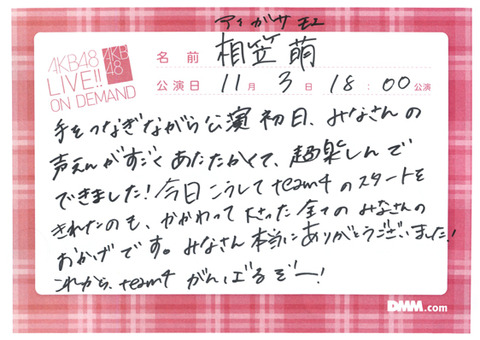 アイガサ モエ
AKB48 LIVE!! ON DEMAND
AKB48
名前 相笠 萌
公演日 11月 3日 18:00公演
手をつなぎながら公演初日、みなさんの
声えんがすごくあたたかくて、超楽しんで
できました！今日こうしてteam4のスタートを
きれたのも、かかわって下さった全てのみなさんの
おかげです。みなさん本当にありがとうございました！
これから、team4 がんばるぞー！
DMM.com